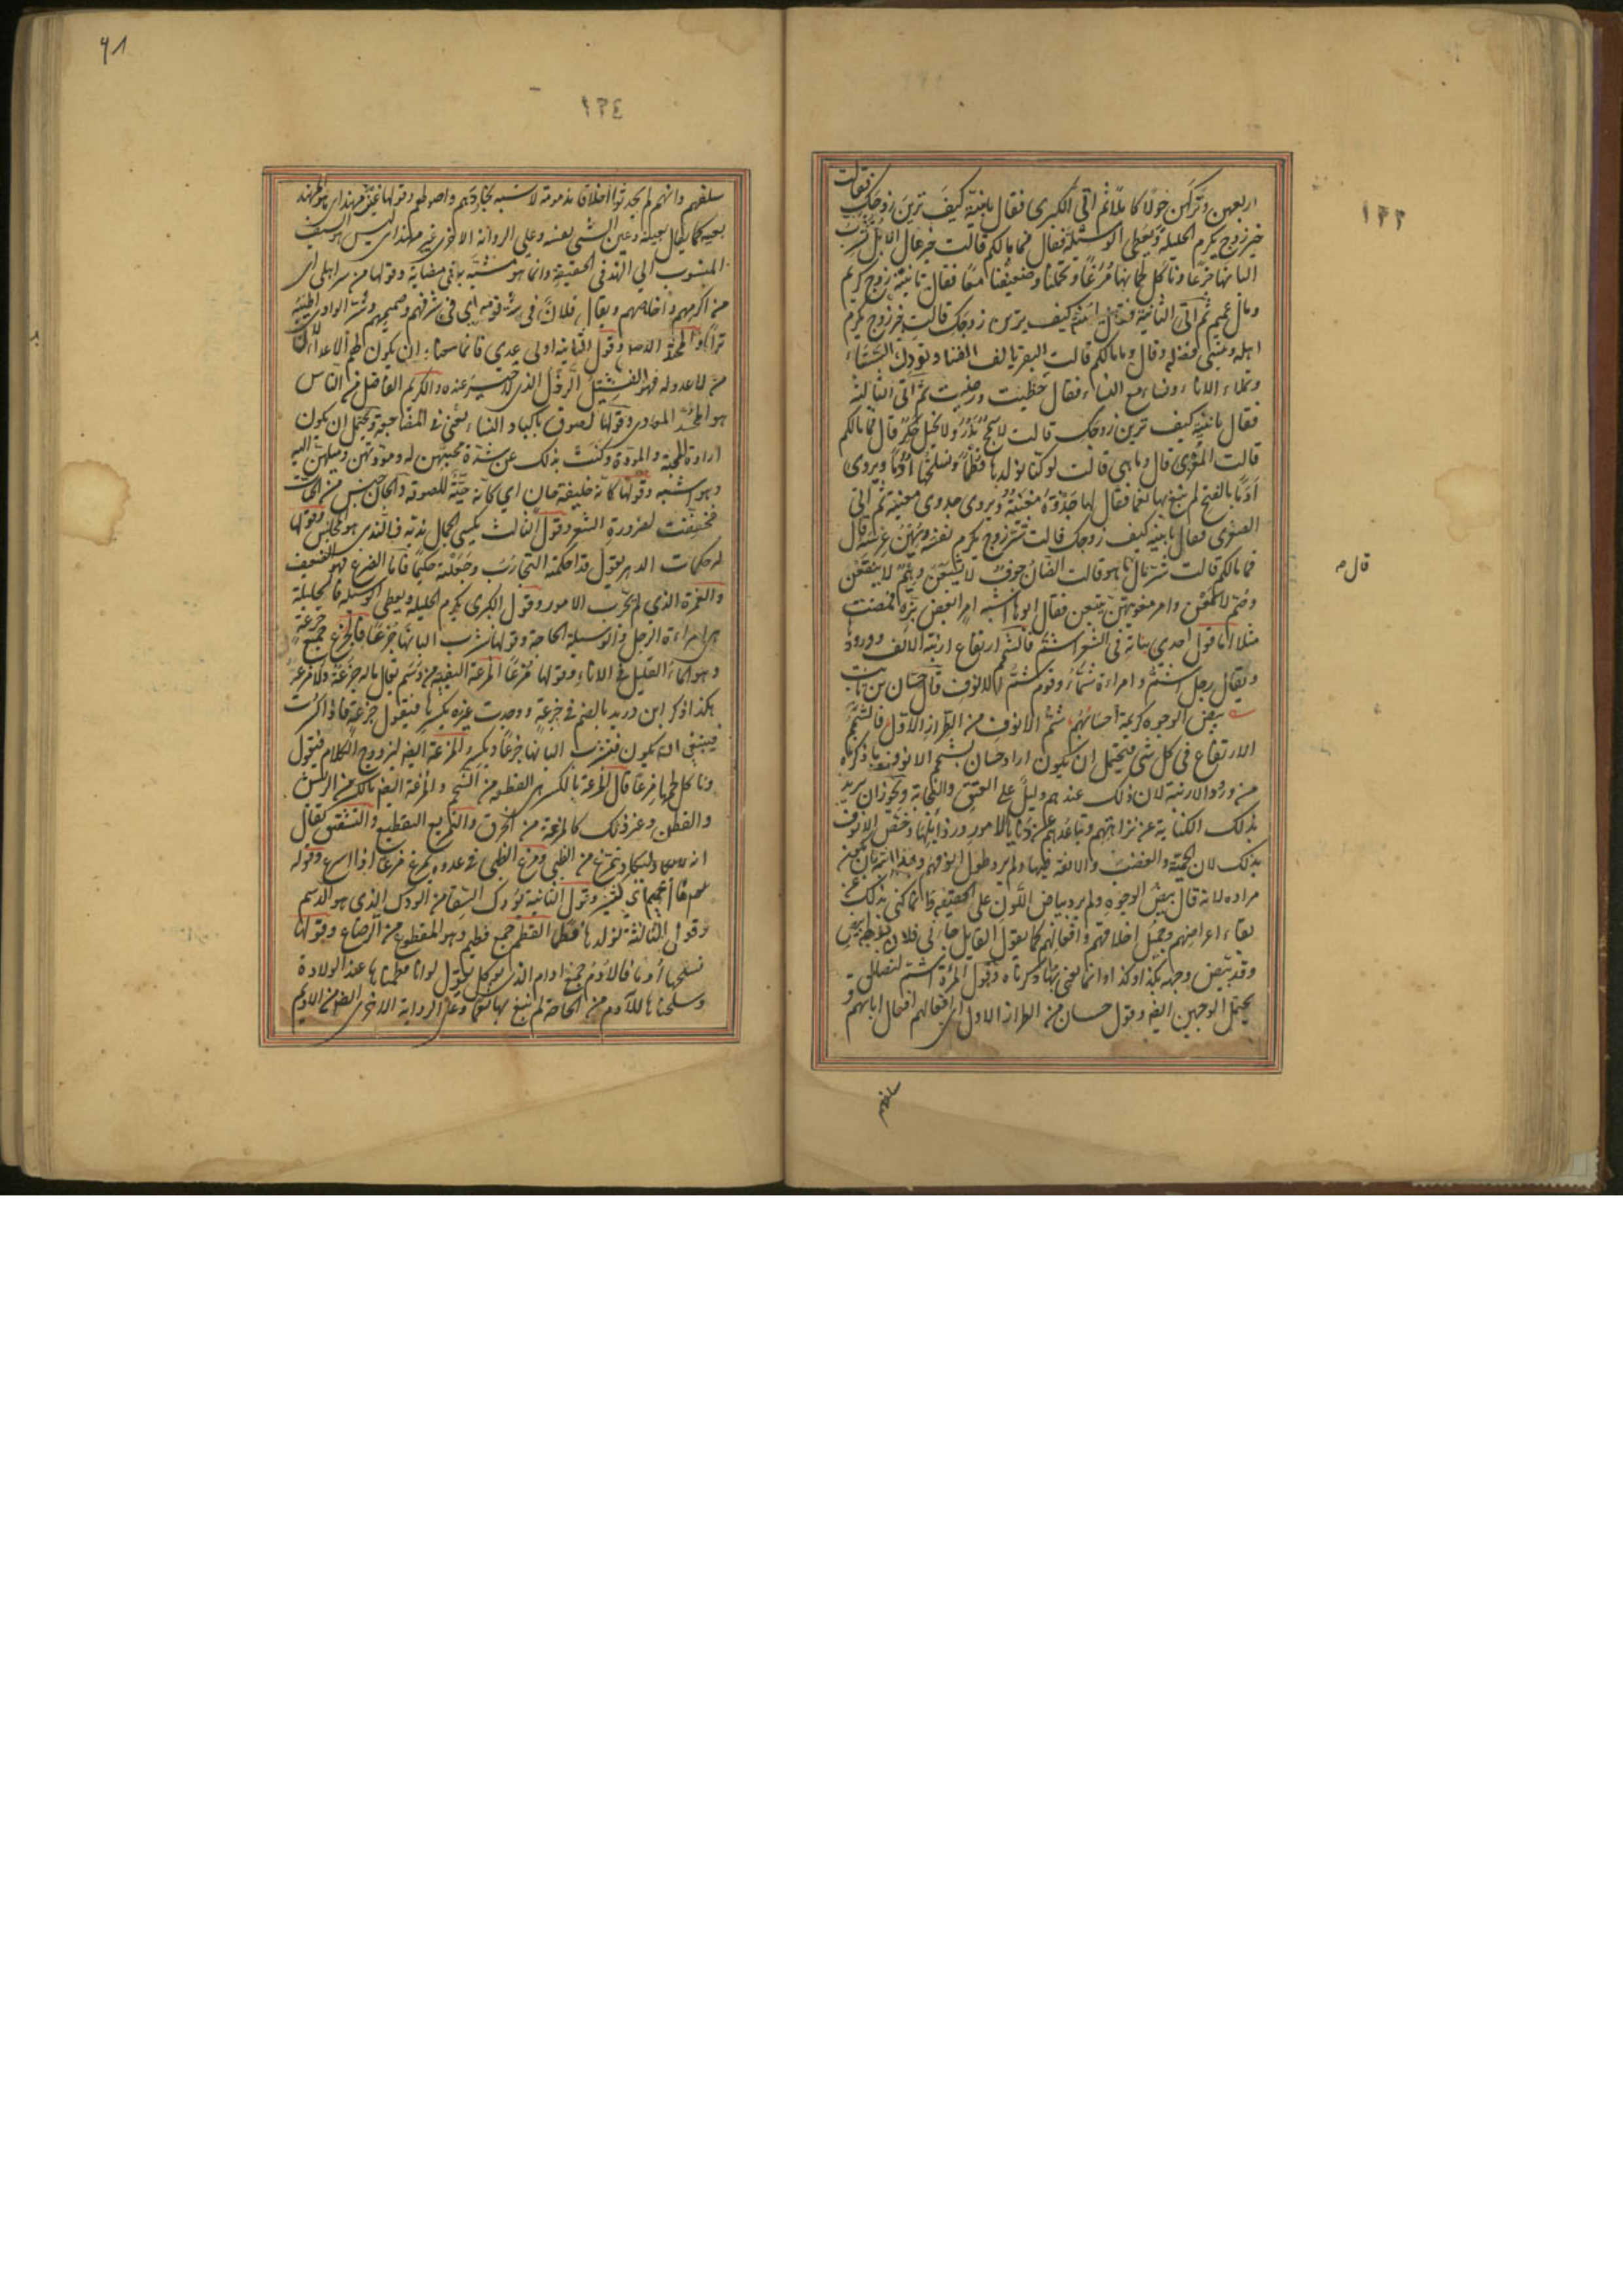 ١٣٣
فقالت
اربعين وتراهن حولا كاملا ثم اتى الكبرى فقال يا بنية كيف ترين زوجك
خير زوج يكرم الحليلة ويعطي الوسيلة فقال فما مالكم قالت خير مال الابل نشرب
البانها جزعا وناكل لحمانها مزعا وتحملنا وضعيفنا معا فقال يا بنية زوج كريم
ومال عميم ثم اتى الثانية فقال يا بنية كيف ترين زوجك قالت خير زوج يكرم
اهله وينسى فضله وقال وما مالكم قالت البقر يألف الفناء وتودك السقاء
وتملاء الاناء ونساء مع النساء فقال حظيت ورضيت ثم اتى الثالثة
فقال يا بنية كيف ترين زوجك قالت لا سمح بذر ولا بخيل حكر قال فما مالكم
قالت المعزى قال وما هي قالت لو كنا نولدها فطما ونسلخها أدما ويروى
أدما بالفتح لم نبغ بها نعما فقال لها جذوة مغنية ويروى جدوى مغنية ثم اتى
الصغرى فقال يا بنية كيف زوجك قالت شر زوج يكرم نفسه ويهين عرسه قال
فما مالكم قالت شر مال ما هو قالت الضان جوف لا يشبعن وهيم لا ينقعن
قال م
وصم لا يسمعن وامر مغويتهن يتبعن فقال ابوها اشبه امر بعض بزه فمضت
مثلا اما قول احدى بناته في الشعر اشم فالشمم ارتفاع ارنبة الانف وورودها
ويقال رجل اشم وامراءة شماء وقوم شم الانوف قال حسان بن ثابت
بيض الوجوه كريمة احسابهم شم الانوف من الطراز الاول فالشمم
الارتفاع في كل شي فيحتمل ان يكون اراد حسان بشمم الانوف ما ذكرناه
من ورود الارنبة لان ذلك عندهم دليل على العتق والنجابة ويجوز ان يريد
بذلك الكناية عن نزاهتهم وتباعدهم عن دنايا الامور ورذايلها وخص الانوف
بذلك لان الحمية والغضب والانفة فيها ولم يرد طول انوفهم وهذا اشبه ان يكون
مراده لانه قال بيض الوجوه ولم يرد بياض اللون على الحقيقة وانما كنى بذلك عن
نقاء اعراضهم وجميل اخلاقهم وافعالهم كما يقول القايل جاءني فلان بوجه ابيض
وقد بيض وجهه بكذا وكذا وانما يعني بها ما ذكرناه وقول المرأة اشم كنصل
يحتمل الوجهين ايضا وقول حسان من الطراز الاول اى افعالهم افعال ابائهم و
سلفهم
٩١
١٣٤
سلفهم وانهم لم يحدثوا اخلاقا مذمومة لا تشبه نجارهم واصولهم وقولها عين مهند اى هو المهند
بعينه كما يقال بعينه وعين الشي نفسه وعلى الرواية الاخرى غير مهند اى ليس هو السيف
المنسوب الى الهند في الحقيقة وانما هو مشبه به في مضايه وقولها من سر اهلي اى
من اكرمهم واخلصهم ويقال فلان في سر قومه اى في شرفهم وصميمهم وسر الوادى اطيبه
ترابا والمحتد الاصل وقول الثانية اولى عدى فانما معناه ان يكون لهم الاعداء لان
من لا عدو له فهو الفسل الرذل الذى لا خير عنده والكريم الفاضل من الناس
هو المحسد المعادى وقولها لصوق باكباد النساء يعني في المضاجعة ويحتمل ان يكون
ارادة المحبة والمودة وكنت بذلك عن شدة محبتهن له ومودتهن وميلهن اليه
وهو اشبه وقولها كانه خليفة جان اى كانه حية للصوقه والجان جنس من الحيات
فخففت لضرورة الشعر وقول الثالث يكسى الجمال نديه فالندى هو المجلس وقولها
له حكمات الدهر يقول قد احكمته التجارب وجعلته حكيما فاما الضرع فهو الضعيف
والغمرة الذي لم يجرب الامور وقول الكبرى يكرم الحليلة ويعطي الوسيلة فالحليلة
هي امراءة الرجل والوسيلة الحاجة وقولها نشرب البانها جزعا فالجزع جمع جزعة
وهو الماء القليل في الاناء وقولها مزعا المزعة البقية من دسم يقال ماله جزعة ولا مزعة
هكذا ذكر ابن دريد بالضم في جزعة ووجدت غيره يكسرها فيقول جزعة فاذا كسرت
فينبغي ان يكون فنشرب البانها جزعا ويكسر المزعة ايضا ليزدوج الكلام فيقول
وناكل لحمها مزعا قال المزعة بالكسر هي القطعة من الشحم والمزعة ايضا بالكسر من الريش
والقطن وغير ذلك كالمزعة من الخرق والتمزيع التقطيع والتشقيق يقال
انه يكاد يتمزع من الغيظ ومزع الظبي في عدوه يمزع مزعا اذا اسرع وقوله
مال عميم اى كثير وقول الثانية تودك السقا من الودك الذى هو الدسم
وقول الثالثة نولدها فطما الفطم جمع فطيم وهو المقطوع من الرضاع وقولها
نسلخها أدما فالأدم جمع ادام الذى يوكل يقول لو انا فطمناها عند الولادة
وسلخناها للأدم من الحاجة لم نبغ بها نعما وعلى الرواية الاخرى ادما من الاديم